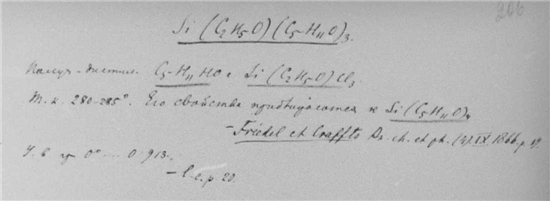 206
Si (C2H5O)(C5H11O)3.
Получ. дистил. C5H11HO с Si(C2H5O)Cl3.
Т. к. 280-285°. Его свойства приближаются к Si(C5H11O)4
- Friedel et Craffts An. ch. et ph. (4) IX. 1866. p.
У. в. пр 0° .... 0.913.
- l. c. p. 20.